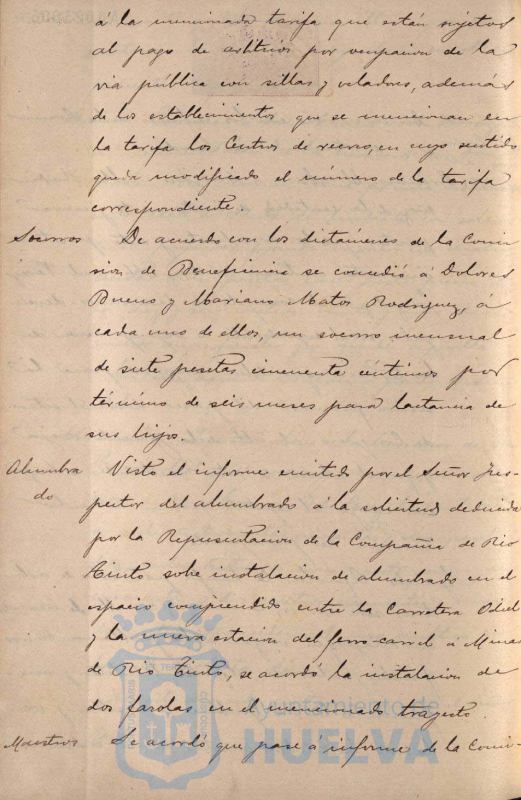 á la mencionada tarifa que están sujetos
al pago de arbitrios por ocupacion de la
via pública con sillas y veladores, además
de los establecimientos que se mencionan en
la tarifa los Centros de recreo, en cuyo sentido
queda modificado el número de la tarifa
correspondiente.
Socorros De acuerdo con los dictámenes de la Comi
sion de Beneficencia se concedió á Dolores
Bueno y Mariano Matos Rodriguez, á
cada uno de ellos, un socorro mensual
de siete pesetas cincuenta centimos por
término de seis meses para lactancia de
sus hijos.
Alumbra
do
Visto el informe emitido por el Señor Ins-
pector del alumbrado á la solicitud deducida
por la Representacion de la Compañia de Rio
Tinto sobre instalacion de alumbrado en el
espacio comprendido entre la Carretera Odiel
y la nueva estacion del ferro-carril á Minas
de Rio Tinto, se acordó la instalacion de
dos farolas en el mencionado trayecto.
Maestros Se acordó que pase á informe de la Comi-
Ayuntamiento de
HUELVA